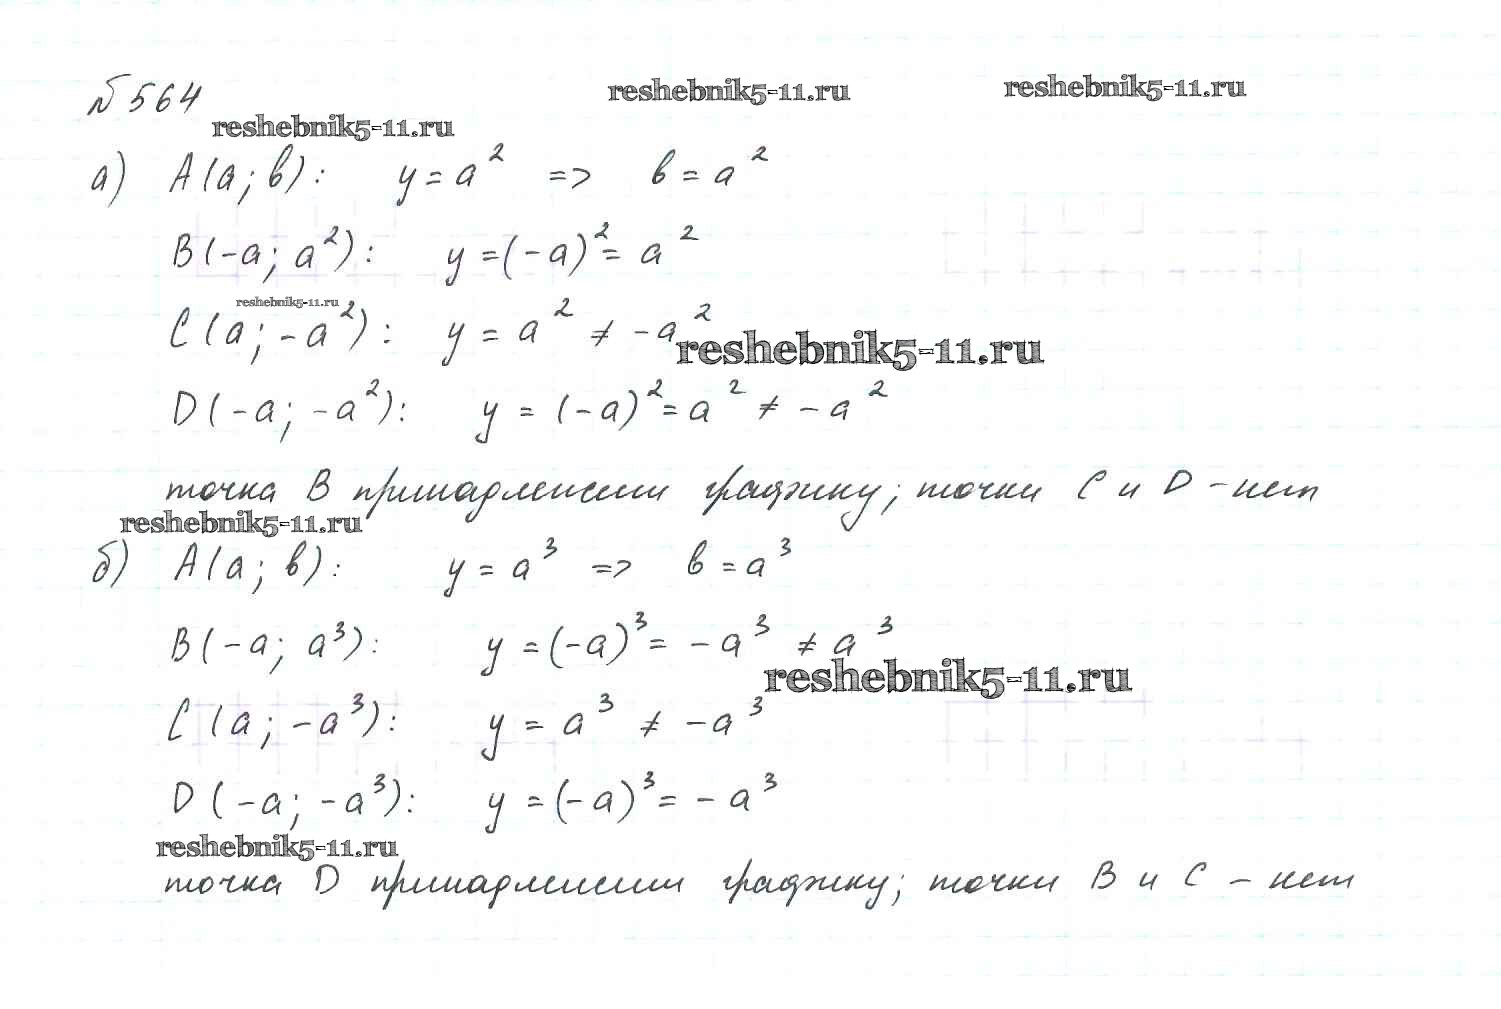 № 564
reshebnik5-11.ru reshebnik5-11.ru
reshebnik5-11.ru
а) A(a; в): y = a² => в = a²
B(-a; a²): y = (-a)² = a²
reshebnik5-11.ru
C(a; -a²): y = a² ≠ -a²
reshebnik5-11.ru
D(-a; -a²): y = (-a)² = a² ≠ -a²
точка B принадлежит графику; точки C и D - нет
reshebnik5-11.ru
б) A(a; в): y = a³ => в = a³
B(-a; a³): y = (-a)³ = -a³ ≠ a³
reshebnik5-11.ru
C(a; -a³): y = a³ ≠ -a³
D(-a; -a³): y = (-a)³ = -a³
reshebnik5-11.ru
точка D принадлежит графику; точки B и C - нет